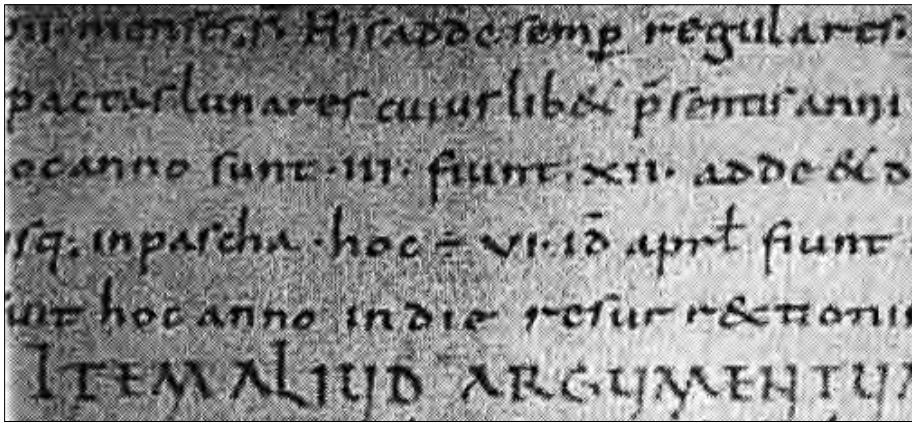 mens̄ s̄. His adde semp̱ regulares.
pactas lunares cuiuslib& p̄sentis anni
oc anno sunt ·III· fiunt XII· adde & d
sq; in pascha · hoc ÷ VI· id̄ aprł fiunt
unt hoc anno in die resurr&tioni
ITEM ALIUD ARGUMENTUM